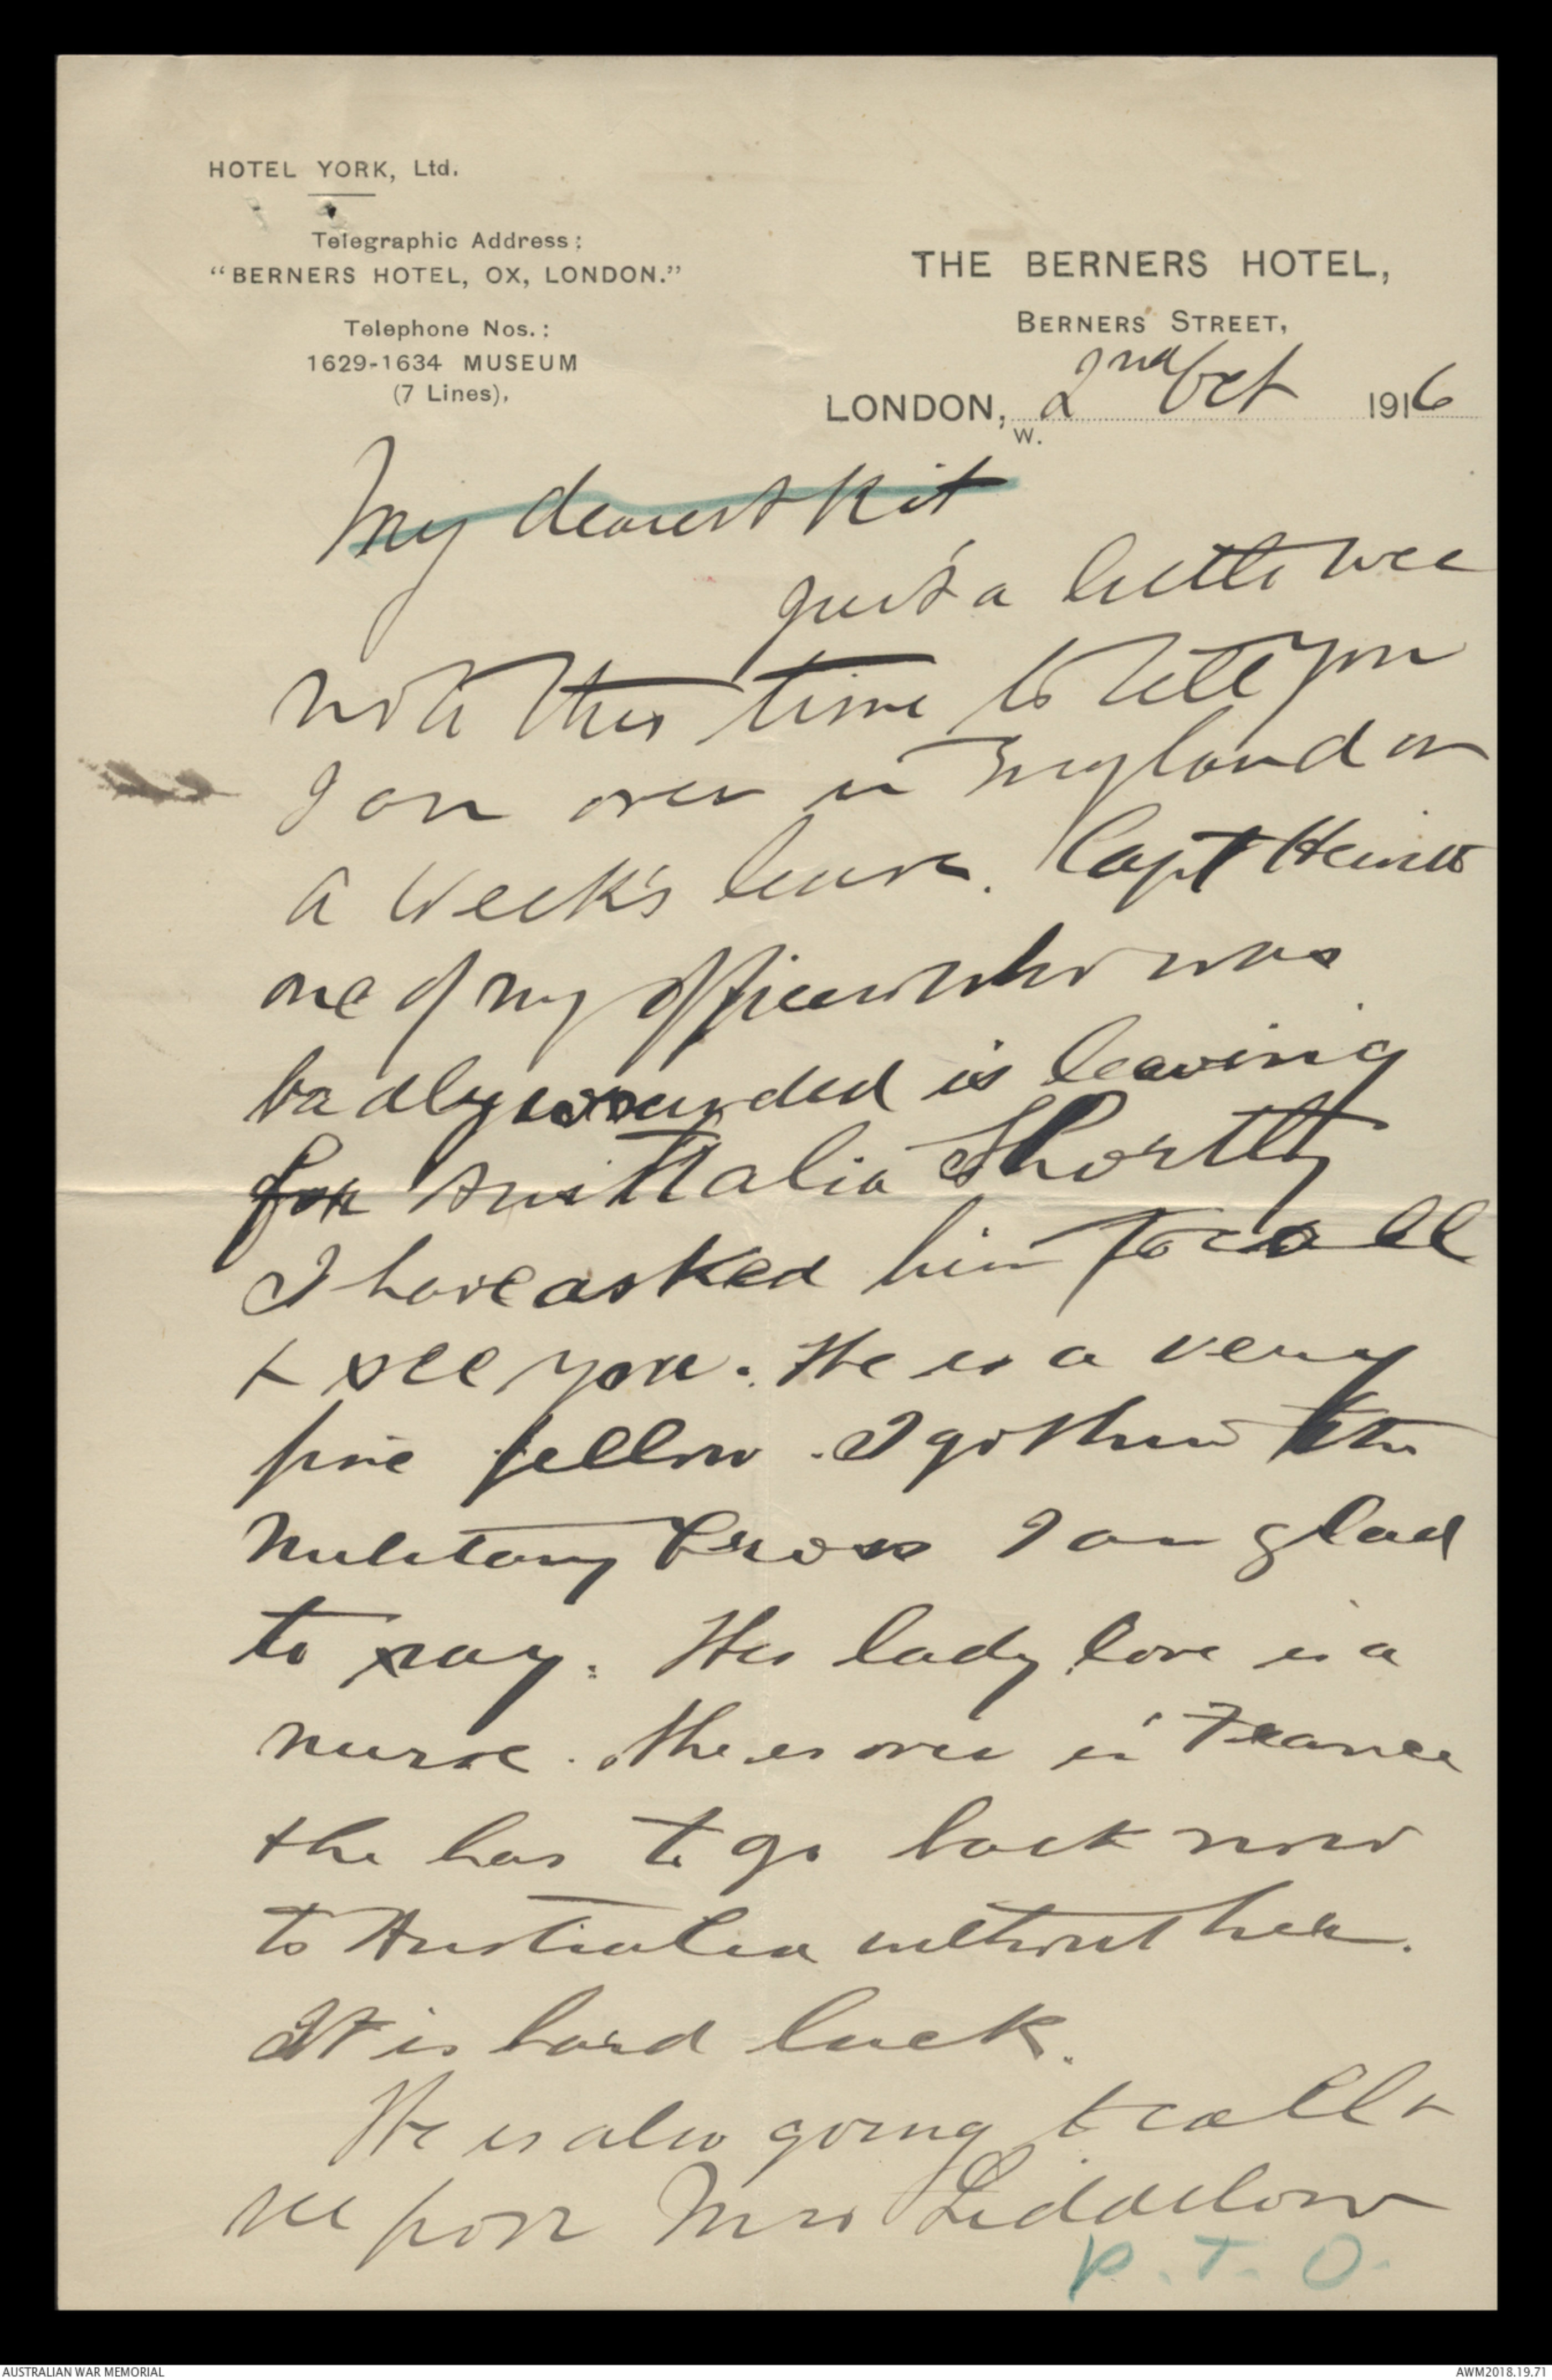 HOTEL YORK, Ltd.
Telegraphic Address:
"BERNERS HOTEL, OX, LONDON."
Telephone Nos.:
1629-1634 MUSEUM
(7 Lines).
THE BERNERS HOTEL,
BERNERS STREET,
LONDON, 2nd Oct 1916
W.
My dearest Kit
Just a little wee
note this time to tell you
I am over in England on
a week's leave. Capt Hewitt
one of my officers who was
badly wounded is leaving
for Australia shortly
I have asked him to call
& see you. He is a very
fine fellow. I got him the
Military Cross I am glad
to say. His lady love is a
nurse. She is over in France
& he has to go back now
to Australia without her.
It is hard luck.
He is also going to call &
see poor Mrs Liddelow
P.T.O.
AUSTRALIAN WAR MEMORIAL
AWM2018.19.71